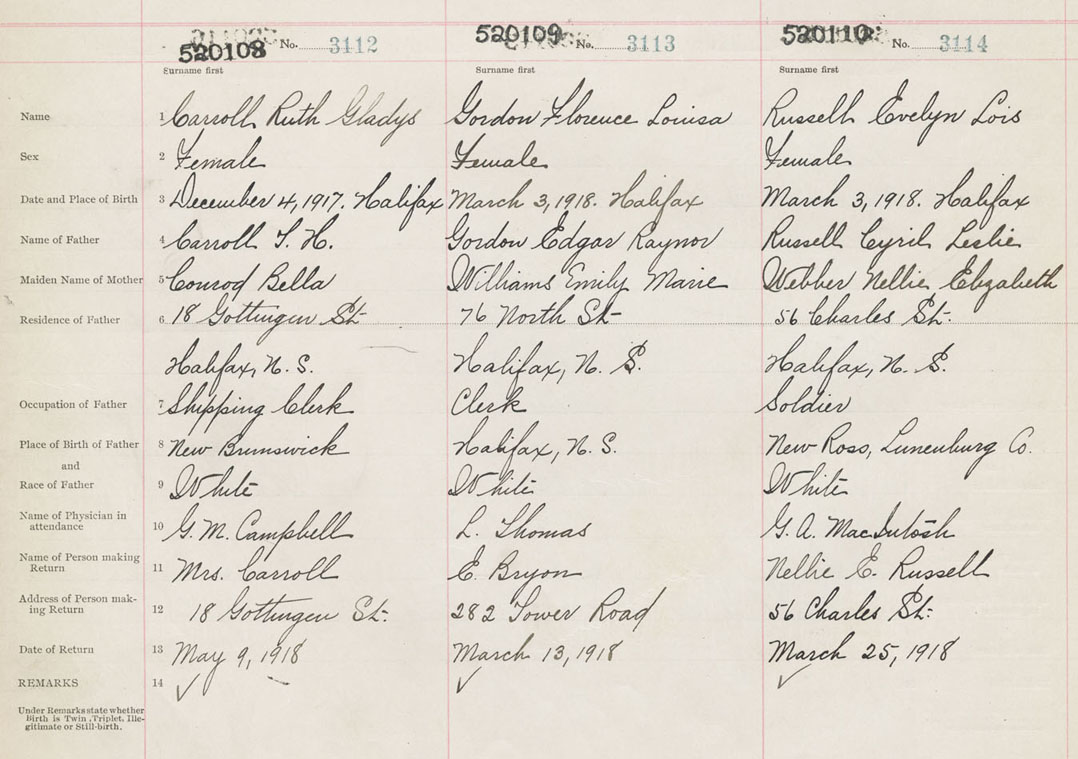 520108 No. 3112 520109 No. 3113 520110 No. 3114
Surname first Surname first Surname first
Name 1 Carroll Ruth Gladys Gordon Florence Louisa Russell Evelyn Lois
Sex 2 Female Female Female
Date and Place of Birth 3 December 4, 1917. Halifax March 3, 1918. Halifax March 3, 1918. Halifax
Name of Father 4 Carroll T. H. Gordon Edgar Raynor Russell Cyril Leslie
Maiden Name of Mother 5 Conrod Bella Williams Emily Marie Webber Nellie Elizabeth
Residence of Father 6 18 Gottingen St. 76 North St. 56 Charles St.
Halifax, N. S. Halifax, N. S. Halifax, N. S.
Occupation of Father 7 Shipping Clerk Clerk Soldier
Place of Birth of Father 8 New Brunswick Halifax, N. S. New Ross, Lunenburg Co.
and
Race of Father 9 White White White
Name of Physician in attendance 10 G. M. Campbell L. Thomas G. A. MacIntosh
Name of Person making Return 11 Mrs. Carroll E. Bryon Nellie E. Russell
Address of Person mak-
ing Return 12 18 Gottingen St. 282 Tower Road 56 Charles St.
Date of Return 13 May 9, 1918 March 13, 1918 March 25, 1918
REMARKS 14
Under Remarks state whether
Birth is Twin, Triplet, Ille-
gitimate or Still-birth.